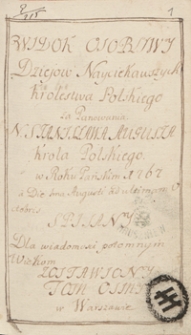 1
WIDOK OSOBLIWY
Dzieiow Nayciekawszych
Krolestwa Polskiego
Za Panowania
STANISŁAWA AUGUSTA
Krola Polskiego
w Roku Pańskim 1767
Die Augusti
SPISANY
Dla wiadomości potomnym
Wiekom
ZOSTAWIONY
TOM OSMY
w Warszawie